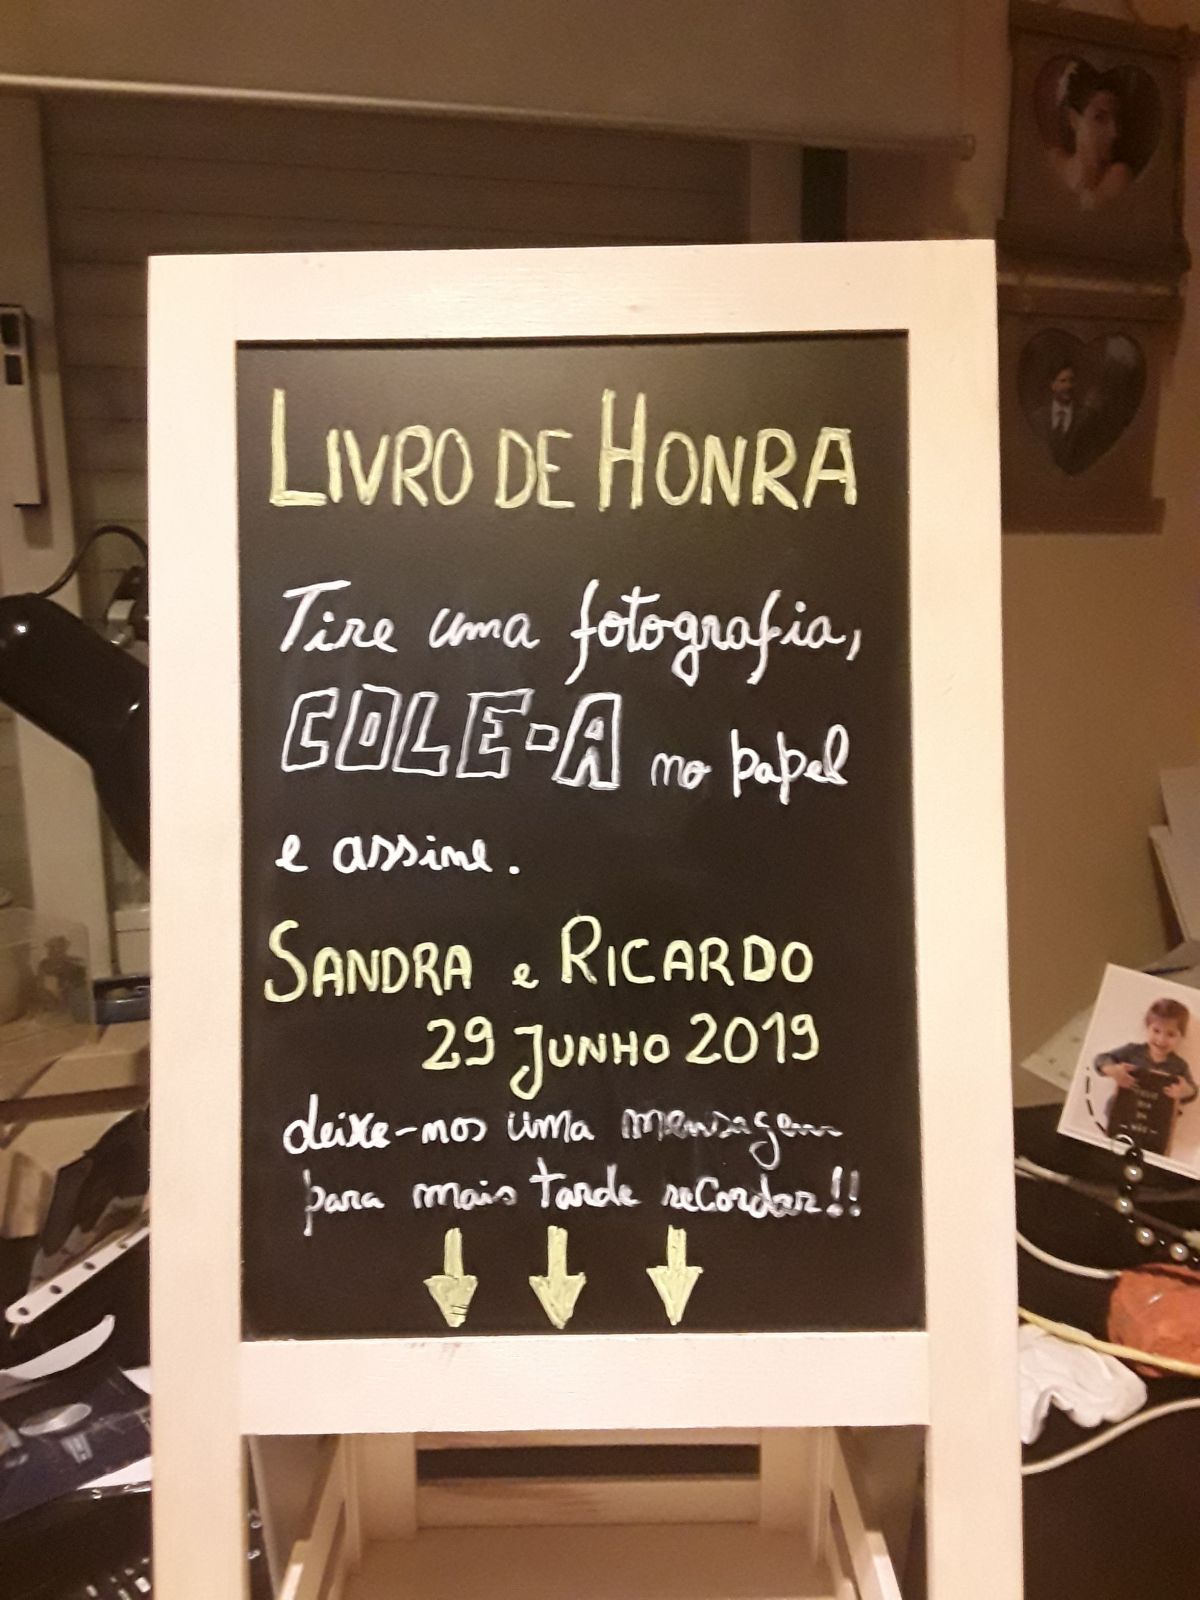 LIVRO DE HONRA
Tire uma fotografia,
COLE-A no papel
e assine.
SANDRA e RICARDO
29 JUNHO 2019
deixe-nos uma mensagem
para mais tarde recordar!!